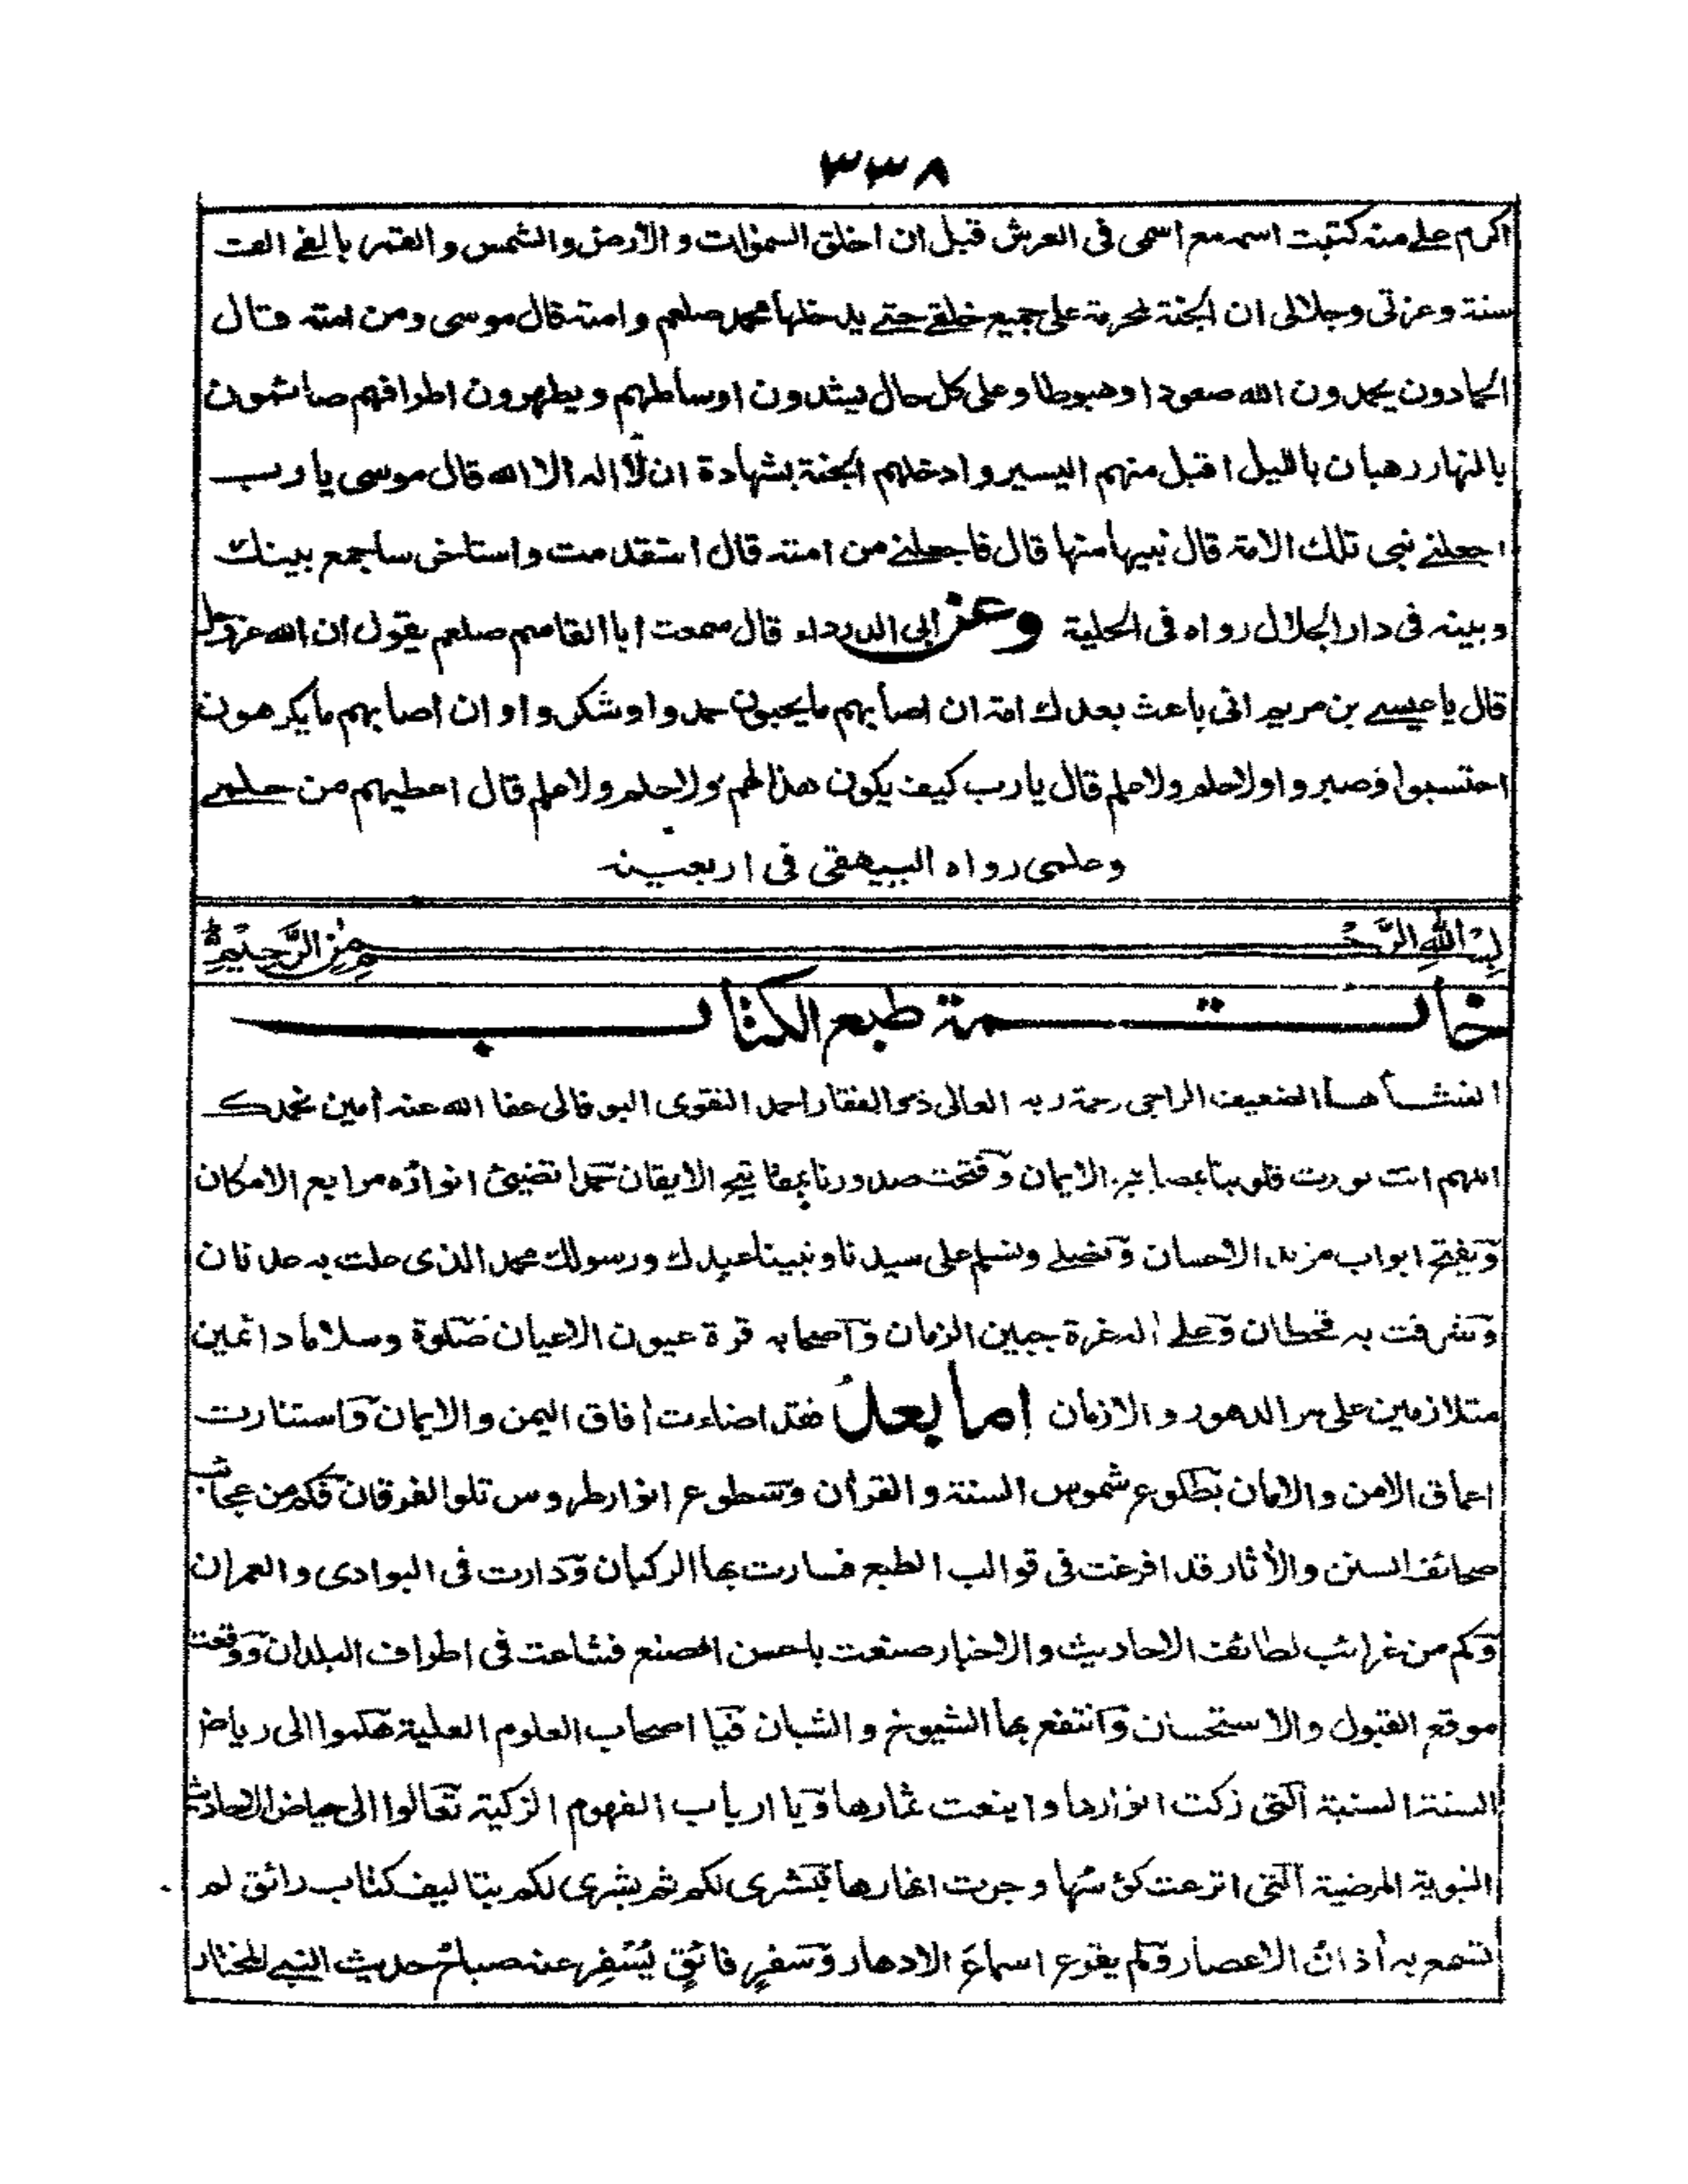 ٣٣٨
اكرم على منه كتبت اسمه مع اسمى فى العرش قبل ان اخلق السموات و الارض و الشمس و القمر بالفى الف
سنة وعزتى وجلالى ان الجنة لمحرمة على جميع خلقى حتى يدخلها محمد صلعم وامته قال موسى ومن امته قال
الحمادون يحمدون الله صعودا وهبوطا وعلى كل حال يشدون اوساطهم ويطهرون اطرافهم صائمون
بالنهار رهبان بالليل اقبل منهم اليسير وادخلهم الجنة بشهادة ان لا اله الا الله قال موسى يا رب
اجعلنى نبى تلك الامة قال نبيها منها قال فاجعلنى من امته قال استقدمت واستاخر ساجمع بينك
وبينه فى دار الجلال رواه فى الحلية وعن ابى الدرداء قال سمعت ابا القاسم صلعم يقول ان الله عزوجل
قال يا عيسى بن مريم انى باعث بعدك امة ان اصابهم ما يحبون حمدوا وشكروا وان اصابهم ما يكرهون
احتسبوا وصبروا ولا حلم ولا علم قال يا رب كيف يكون هذا لهم ولا حلم ولا علم قال اعطيهم من حلمى
وعلمى رواه البيهقى فى اربعينه
بسم الله الرحمن الرحيم
خاتمة طبع الكتاب
انشأها الضعيف الراجى رحمة ربه العالى ذو الفقار احمد النقوى البوفالى عفا الله عنه آمين نحمدك
اللهم انت نورت قلوبنا بمصابيح الايمان وفتحت صدورنا بمفاتيح الايقان حمدا تضيئ انواره مرابع الامكان
وتفتح ابواب مزيد الاحسان ونصلى ونسلم على سيدنا ونبينا عبدك ورسولك محمد الذى حلت به عدنان
وتشرفت به قحطان وعلى اله غرة جبين الزمان واصحابه قرة عيون الاعيان صلوة وسلاما دائمين
متلازمين على مر الدهور والازمان اما بعد فقد اضاءت آفاق اليمن والايمان واستنارت
اعماق الامن والامان بطلوع شموس السنة والقرآن وسطوع انوار طروس تلو الفرقان فكم من عجائب
صحائف السنن والآثار قد افرغت فى قوالب الطبع فسارت بها الركبان ودارت فى البوادى والعمران
وكم من غرائب لطائف الاحاديث والاخبار صنعت باحسن الصنع فشاعت فى اطراف البلدان ووقعت
موقع القبول والاستحسان وانتفع بها الشيوخ والشبان فيا اصحاب العلوم العلية هلموا الى رياض
السنة السنية التى زكت انوارها واينعت ثمارها ويا ارباب الفهوم الزكية تعالوا الى حياض الاحاديث
النبوية المرضية التى اترعت كؤسها وجرت انهارها فبشرى لكم ثم بشرى لكم بتاليف كتاب رائق لم
تسمع به آذان الاعصار ولم يقرع اسماع الادهار وسفر فائق يسفر عنه صباح حديث النبى المختار